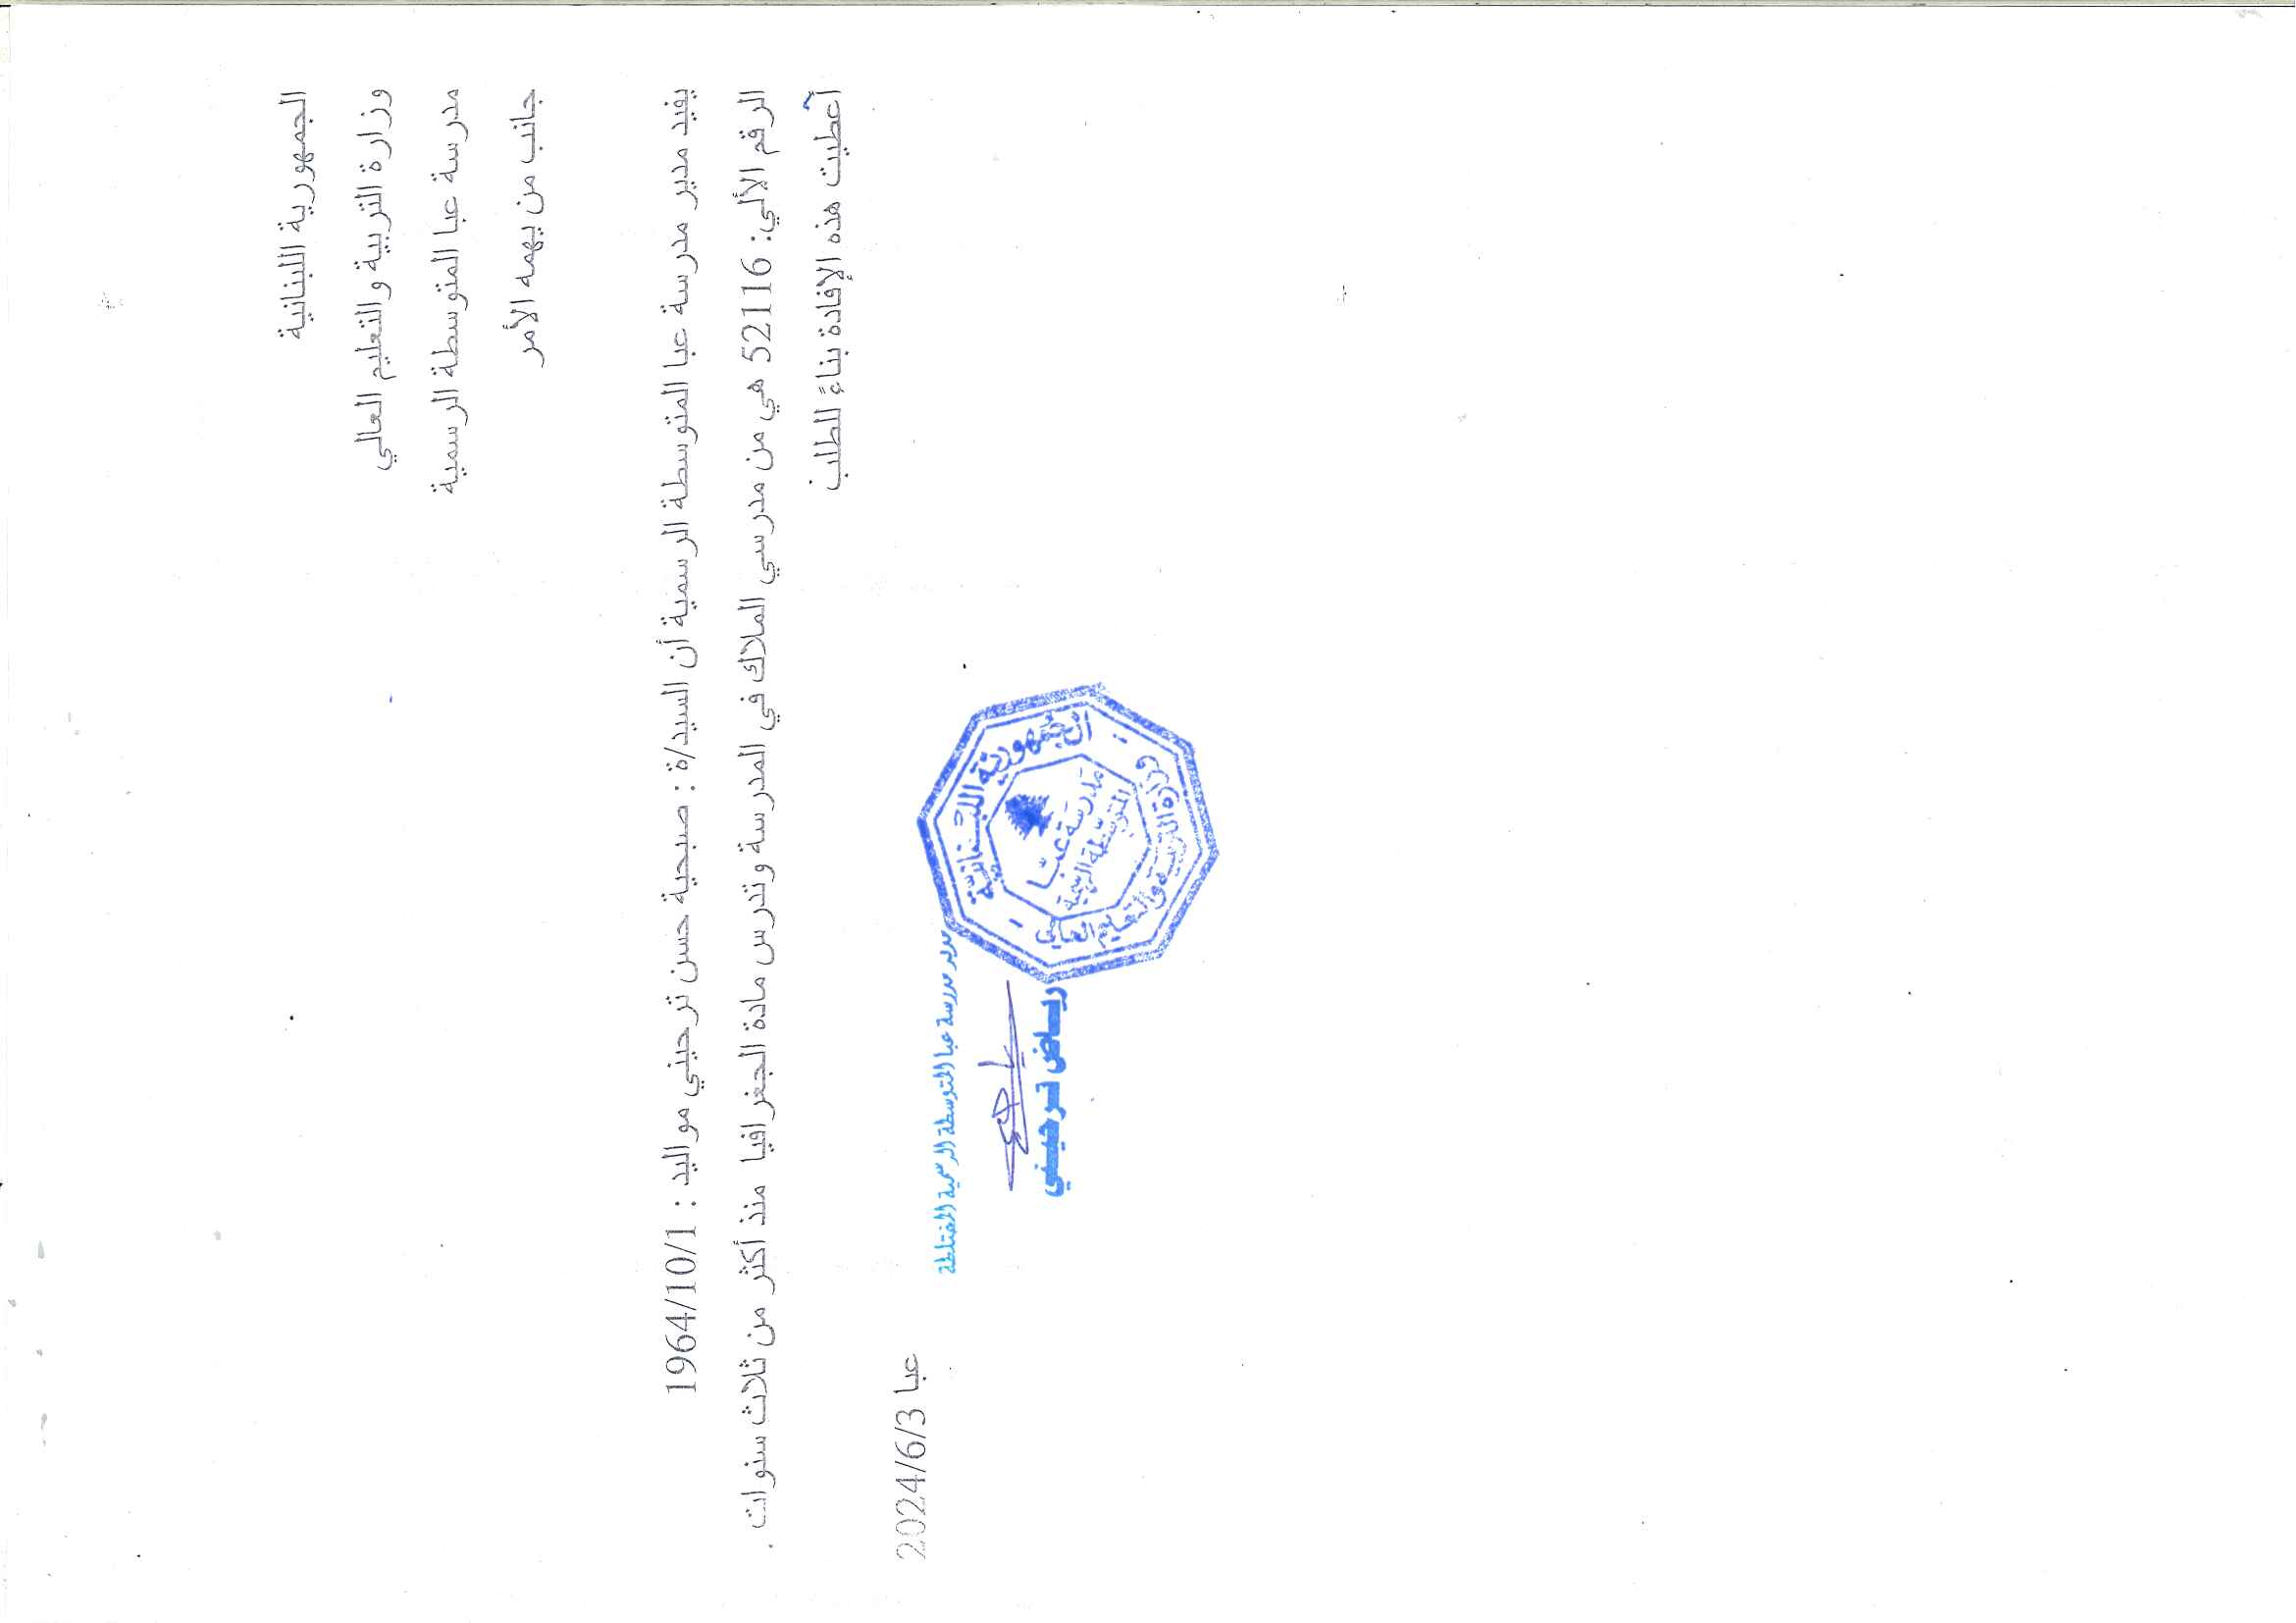 الجمهورية اللبنانية
وزارة التربية والتعليم العالي
مدرسة عبا المتوسطة الرسمية
جانب من يهمه الأمر
يفيد مدير مدرسة عبا المتوسطة الرسمية أن السيد/ة : صبحية حسن ترحيني مواليد : 1964/10/1
الرقم الألي: 52116 هي من مدرسي الملاك في المدرسة وتدرس مادة الجغرافيا منذ أكثر من ثلاث سنوات .
أعطيت هذه الإفادة بناءً للطلب
عبا 2024/6/3
مدير مدرسة عبا المتوسطة الرسمية المختلطة
رياض ترحيني
الجمهورية اللبنانية
وزارة التربية والتعليم العالي
مدرسة عبا
المتوسطة الرسمية